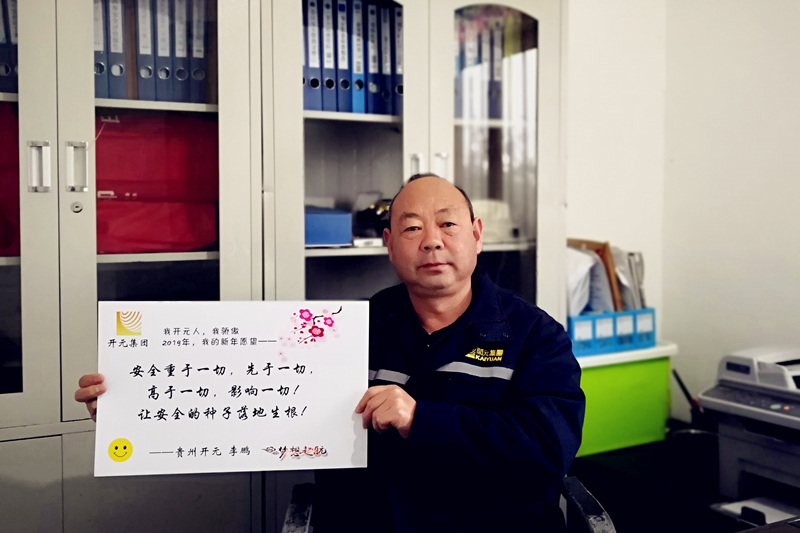 开元集团
我开元人，我骄傲
2019年，我的新年愿望——
安全重于一切，先于一切，
高于一切，影响一切！
让安全的种子落地生根！
——贵州开元 李鹏
梦想起航
开元集团
KAIYUAN